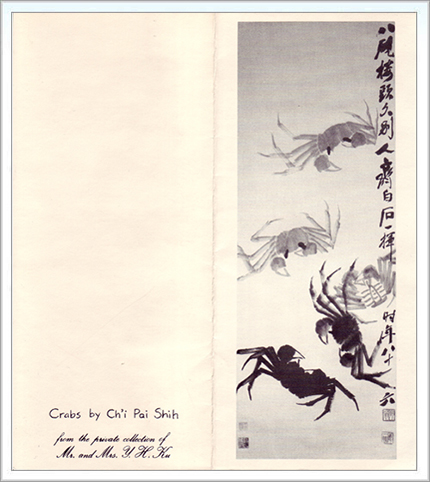 Crabs by Ch'i Pai Shih
from the private collection of
Mr. and Mrs. Y. H. Ku
八硯樓頭久別人齊白石一揮時年八十六